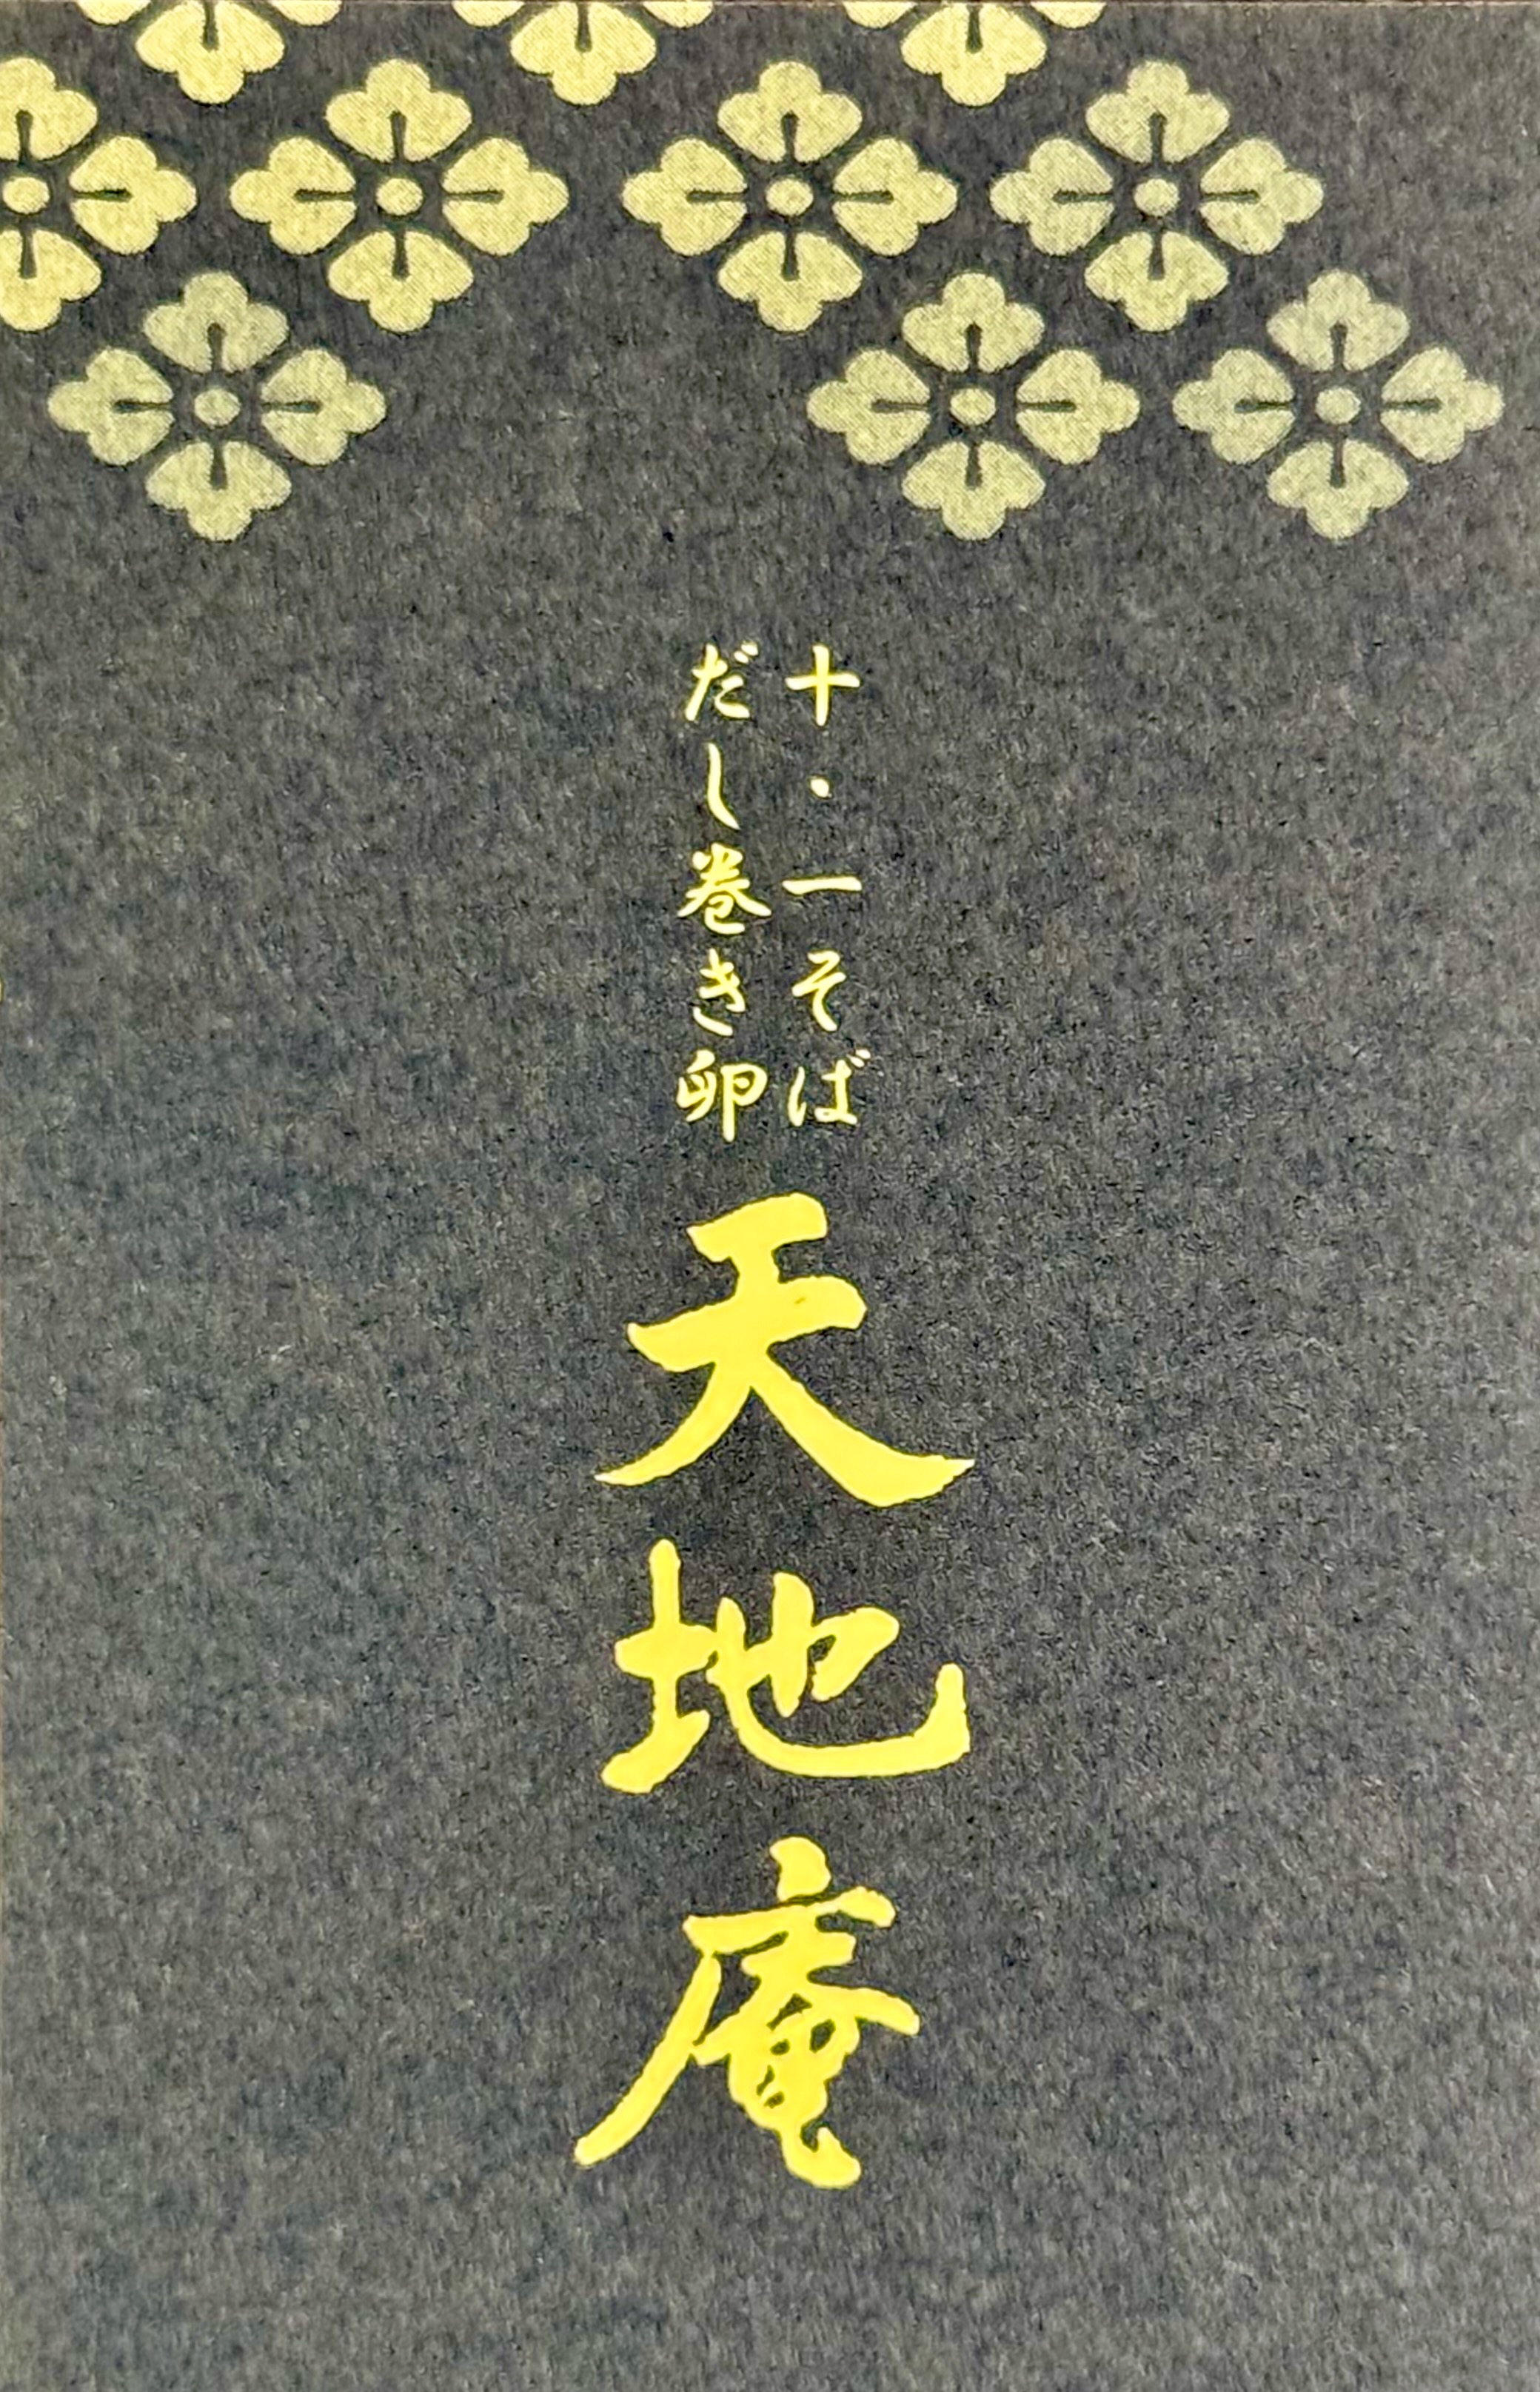 十・一そば
だし巻き卵
天地庵